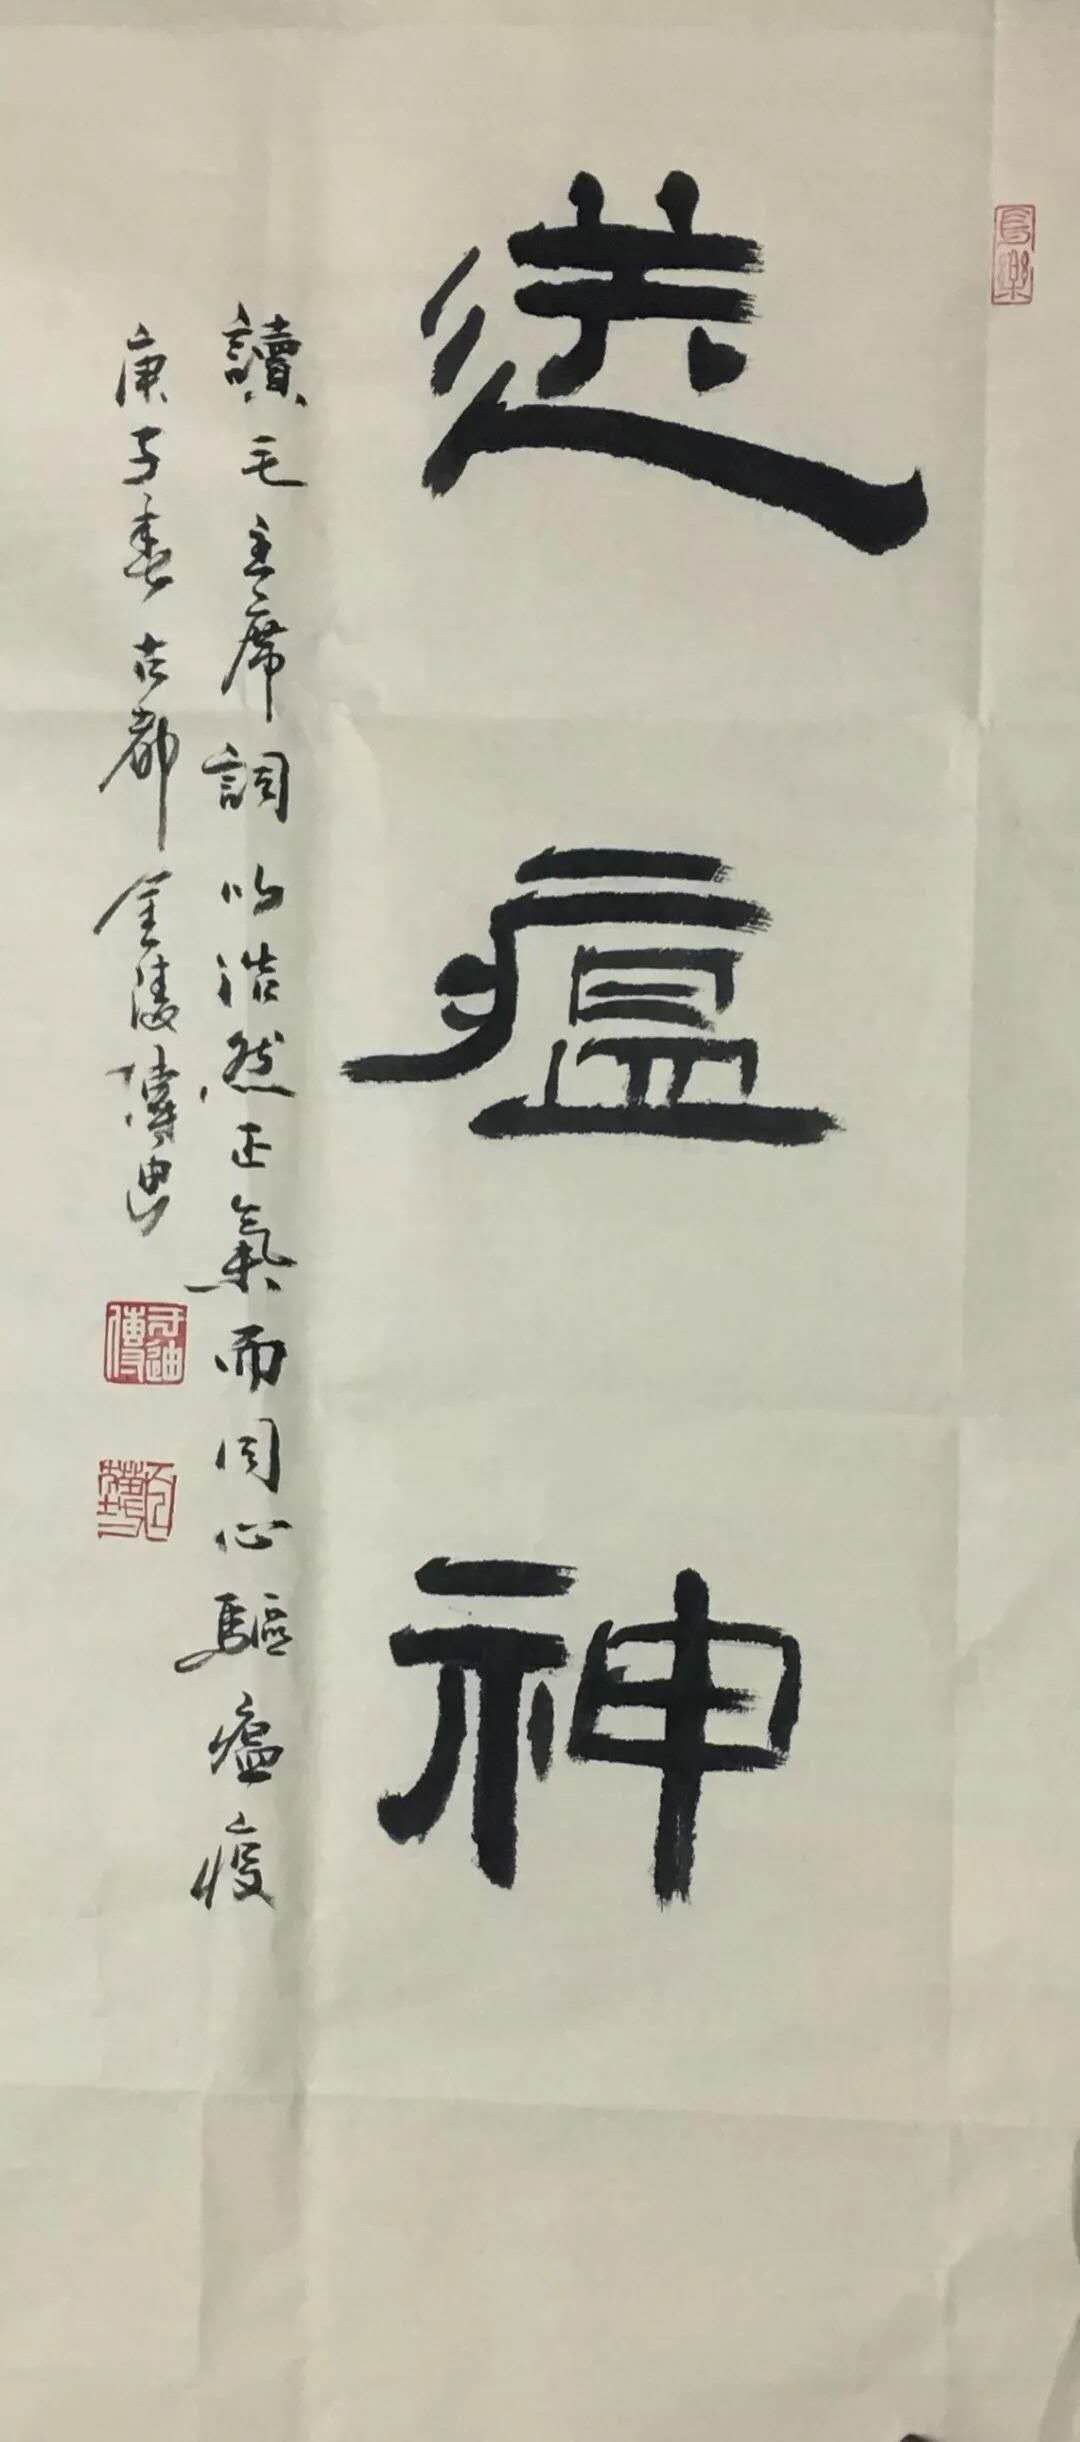 送瘟神
讀毛主席詞以浩然正氣而同心驅瘟疫
庚子春古都金陵傅迪